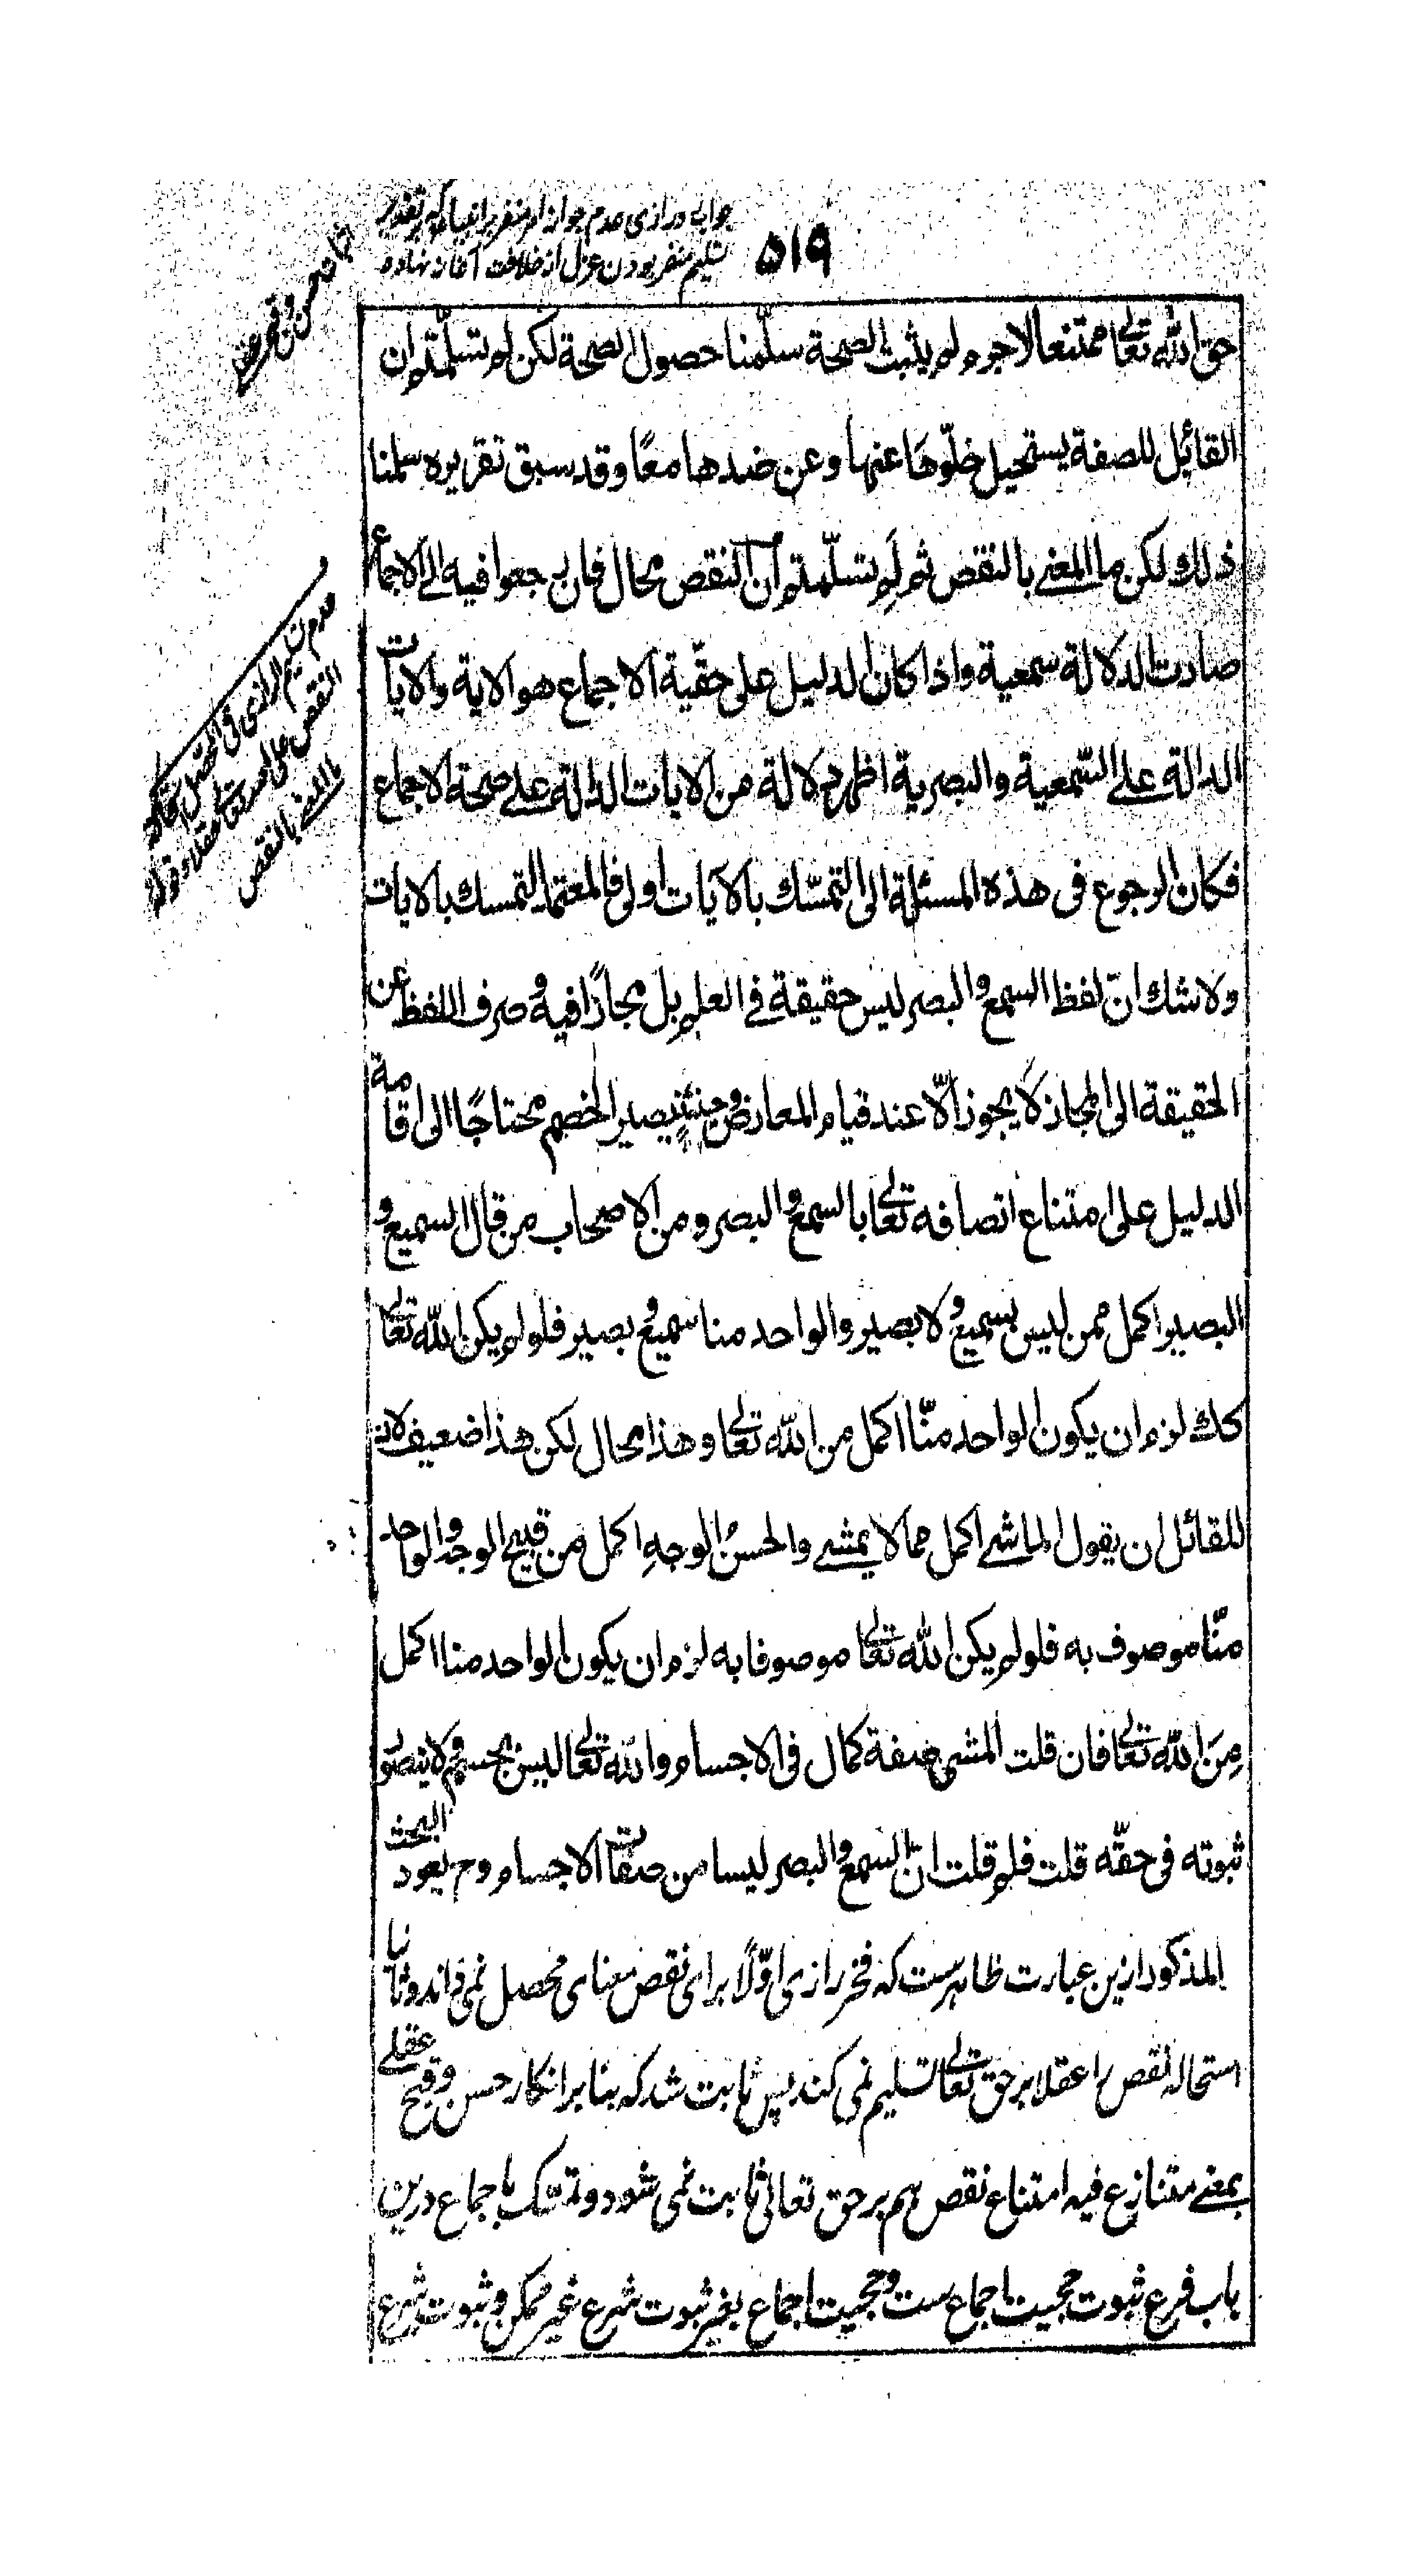 ۵۱۹
جواب رازی عدم جواز امر منفر بر انبیا که بتقدیر
تسلیم منفر بودن عزل از خلافت آغاز نهاده
حق الله تعالى ممتنعا لا جرم لم يثبت الصحة سلّمنا حصول الصحة لكن لم تسلّمتم ان
القائل للصفة يستحيل خلوّها عنها وعن ضدها معًا وقد سبق تقريره سلمنا
ذلك لكن ما المعنے بالنقص ثم لِم تسلّمتم ان النقص محال فان رجعوا فيه الى الاجماع
صارت الدلالة سمعية واذا كان الدليل على حقّية الاجماع هو الاية والايات
الدالة على السّمعية والبصرية اظهر دلالة من الايات الدالة على صحة الاجماع
فكان الرجوع فى هذه المسئلة الى التمسّك بالايات اولى فالمعتمد التمسك بالايات
ولا شك انّ لفظ السمع والبصر ليس حقيقة فى العلم بل مجازًا فيه وصرف اللفظ عن
الحقيقة الى المجاز لا يجوز الّا عند قيام المعارض وحينئذٍ يصير الخصم محتاجًا الى اقامة
الدليل على امتناع اتصافه تعالى بالسمع والبصر ومن الاصحاب من قال السميع و
البصير اكمل ممن ليس بسميع ولا بصير والواحد منا سميع وبصير فلو لم يكن الله تعالى
كك لزم ان يكون الواحد منّا اكمل من الله تعالى وهذا محال لكن هذا ضعيف لان
للقائل ان يقول الماشے اكمل مما لا يمشے والحسنُ الوجهِ اكمل من قبيح الوجه والواحد
منّا موصوف به فلو لم يكن الله تعالى موصوفا به لزم ان يكون الواحد منا اكمل
مِنَ الله تعالى فان قلت المشى صفة كمال فى الاجسام والله تعالى ليس بجسم فلا يتصوّر
ثبوته فى حقّه قلت فلم قلت انّ السمع والبصر ليسا من صفات الاجسام وح يعود البحث
المذكور ازين عبارت ظاهرست كه فخر رازى اوّلاً براى نقص معناى محصل نمى داند وثانيا
استحاله نقص را عقلا بر حق تعالى تسليم نمى كند پس ثابت شد كه بنا بر انكار حسن وقبح عقلے
بمعنے متنازع فيه امتناع نقص هم بر حق تعالى ثابت نمى شود وتمسّك باجماع درين
باب فرع ثبوت حجيت اجماع ست وحجيت اجماع بغير ثبوت شرع غير ممكن وثبوت شرع
عدم تسليم الرازى فى المحصّل استحالة
النقص على الله تعالى عقلا وقوله
ما المعنے بالنقص